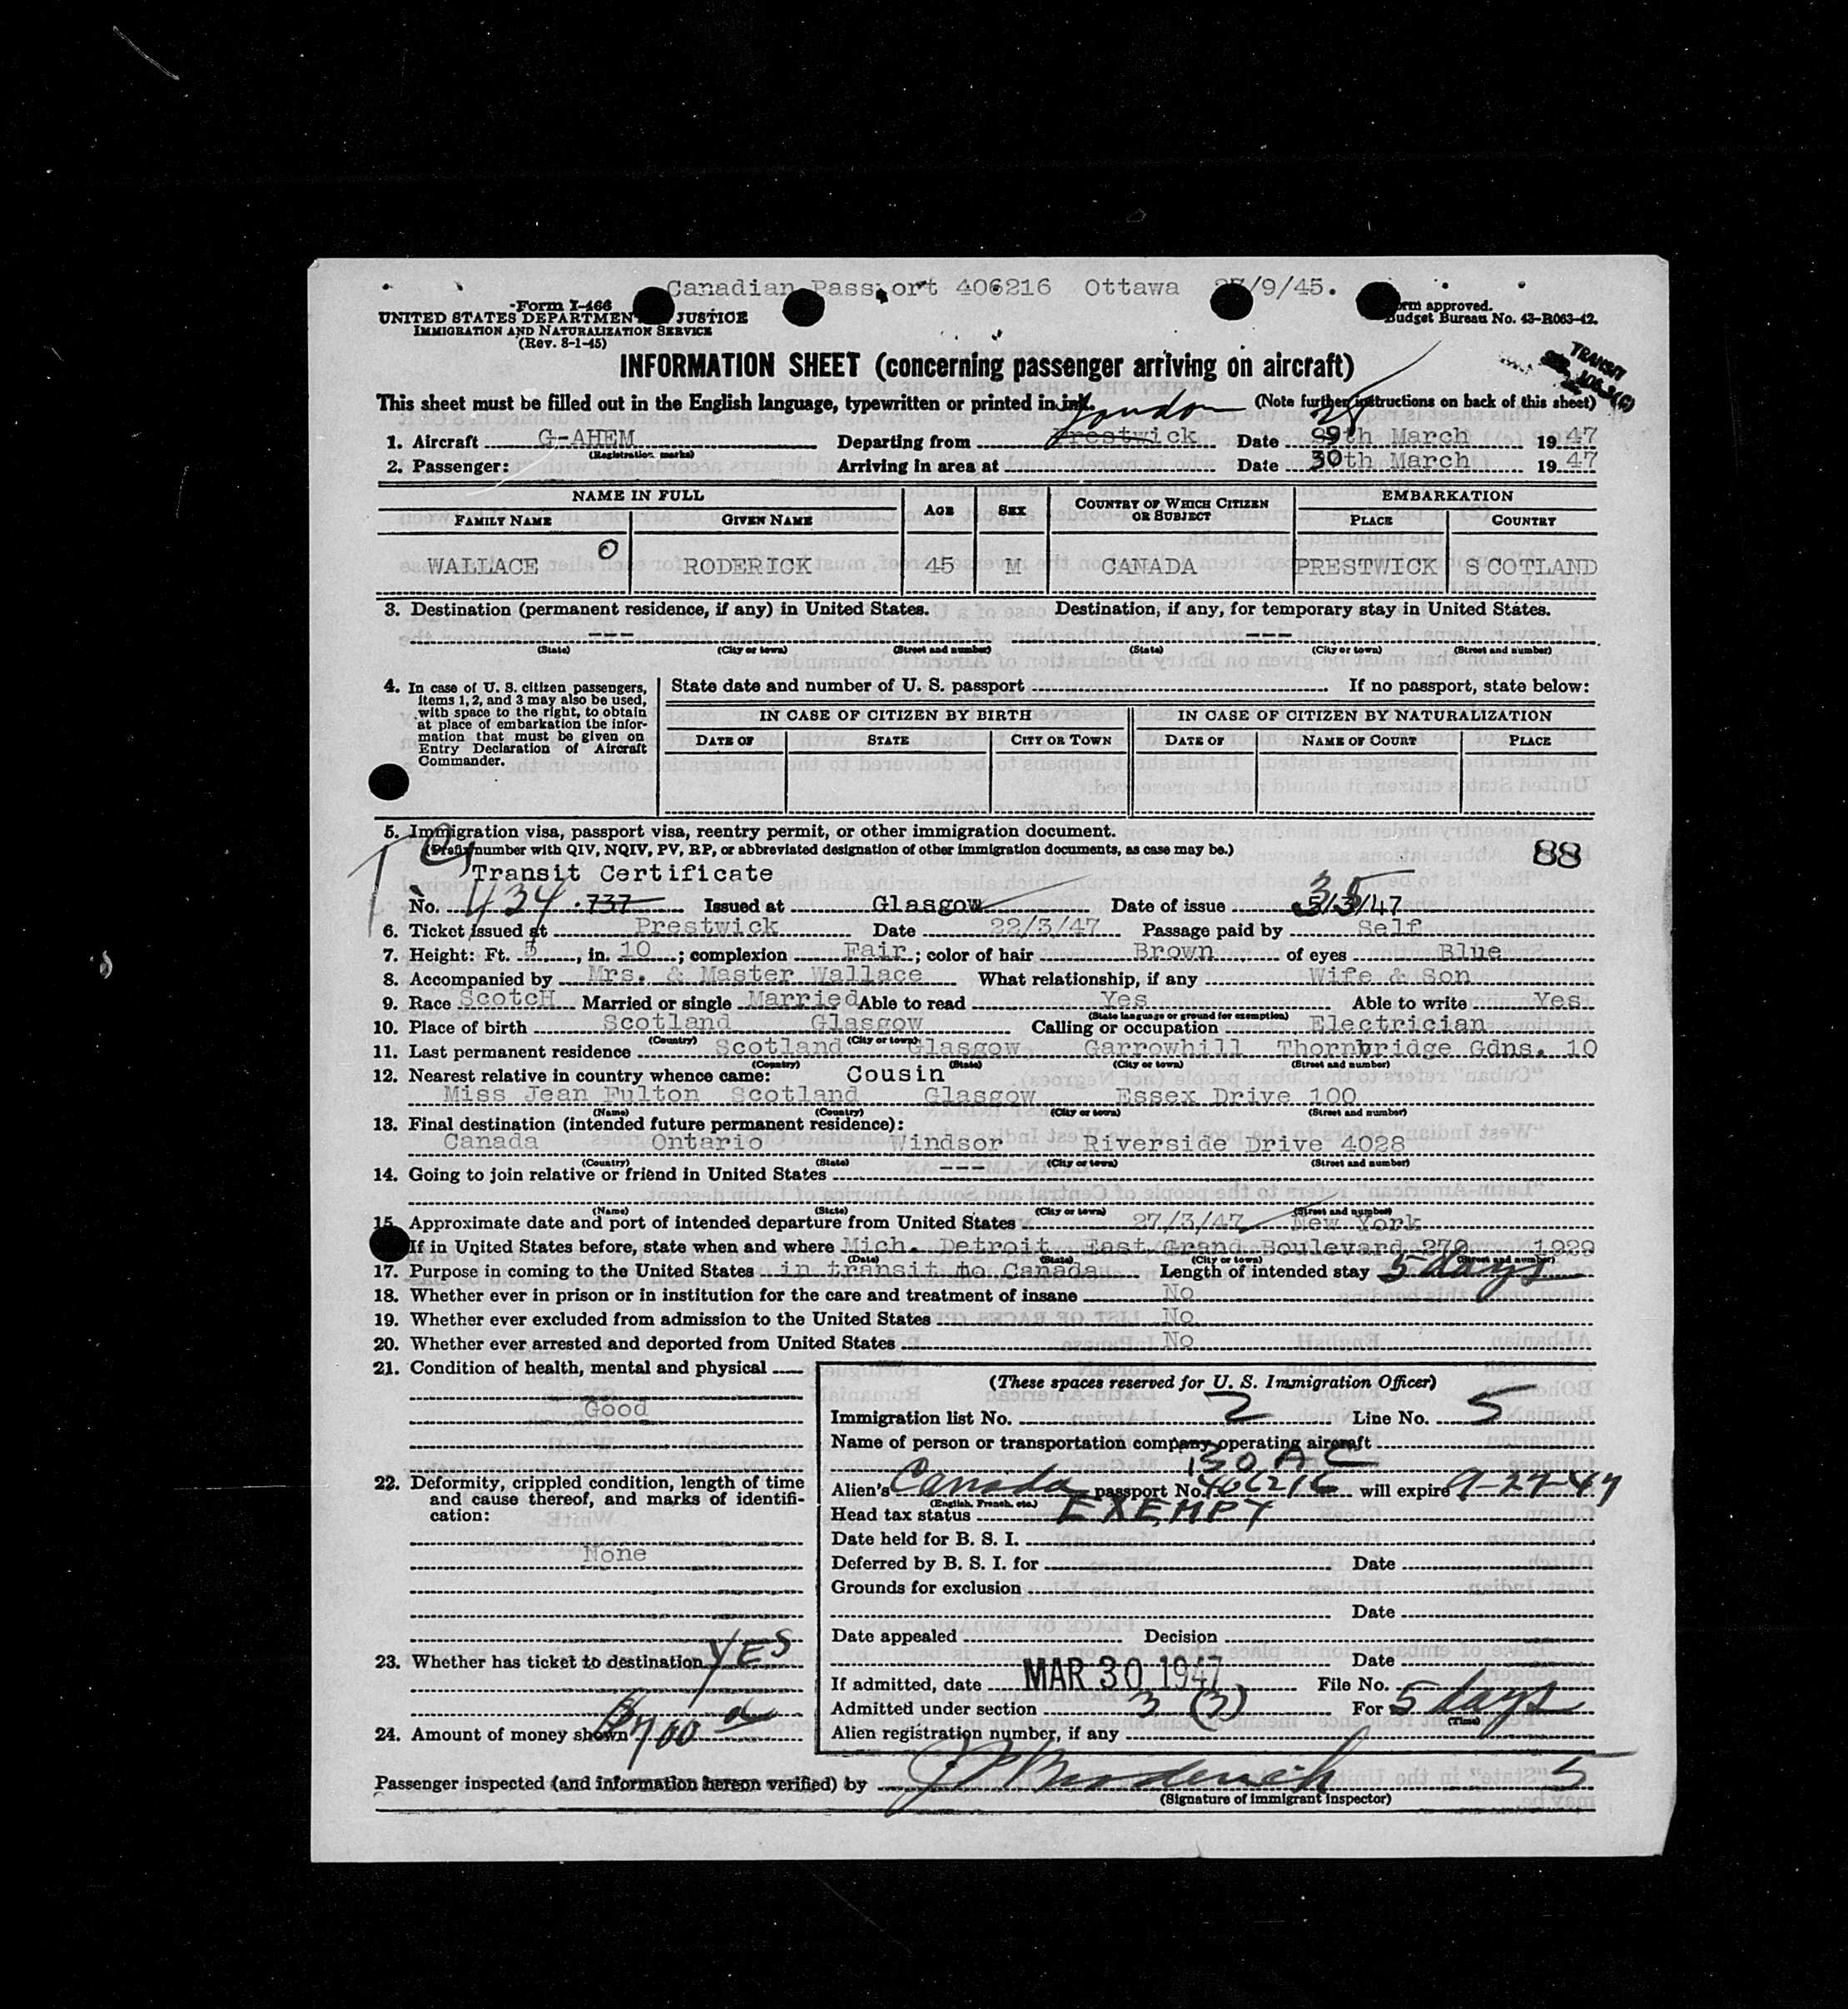 Canadian Passport 406216 Ottawa 27/9/45.
Form I-466
UNITED STATES DEPARTMENT JUSTICE
IMMIGRATION AND NATURALIZATION SERVICE
(Rev. 8-1-45)
Form approved.
Budget Bureau No. 43-R063-42.
TRANSIT
INFORMATION SHEET (concerning passenger arriving on aircraft)
This sheet must be filled out in the English language, typewritten or printed in ink. (Note further instructions on back of this sheet)
London
1. Aircraft G-AHEM Departing from Prestwick Date 29th March 1947
(Registration marks)
2. Passenger: Arriving in area at Date 30th March 1947
NAME IN FULL AGE SEX COUNTRY OF WHICH CITIZEN OR SUBJECT EMBARKATION
FAMILY NAME GIVEN NAME PLACE COUNTRY
WALLACE O RODERICK 45 M CANADA PRESTWICK SCOTLAND
3. Destination (permanent residence, if any) in United States. Destination, if any, for temporary stay in United States.
--- ---
(State) (City or town) (Street and number) (State) (City or town) (Street and number)
4. In case of U. S. citizen passengers, items 1, 2, and 3 may also be used, with space to the right, to obtain at place of embarkation the information that must be given on Entry Declaration of Aircraft Commander.
State date and number of U. S. passport If no passport, state below:
IN CASE OF CITIZEN BY BIRTH IN CASE OF CITIZEN BY NATURALIZATION
DATE OF STATE CITY OR TOWN DATE OF NAME OF COURT PLACE
5. Immigration visa, passport visa, reentry permit, or other immigration document.
(Prefix number with QIV, NQIV, PV, RP, or abbreviated designation of other immigration documents, as case may be.)
88
Transit Certificate
No. 434 737 Issued at Glasgow Date of issue 5/3/47
6. Ticket issued at Prestwick Date 22/3/47 Passage paid by Self
7. Height: Ft. 5, in. 10; complexion Fair; color of hair Brown of eyes Blue
8. Accompanied by Mrs. & Master Wallace What relationship, if any Wife & Son
9. Race ScotcH Married or single Married Able to read Yes Able to write Yes
(State language or ground for exemption)
10. Place of birth Scotland Glasgow Calling or occupation Electrician
(Country) (City or town)
11. Last permanent residence Scotland Glasgow, Garrowhill Thornbridge Gdns. 10
(Country) (State) (City or town) (Street and number)
12. Nearest relative in country whence came: Cousin
Miss Jean Fulton Scotland Glasgow Essex Drive 100
(Name) (Country) (City or town) (Street and number)
13. Final destination (intended future permanent residence):
Canada Ontario Windsor Riverside Drive 4028
(Country) (State) (City or town) (Street and number)
14. Going to join relative or friend in United States ---
(Name) (State) (City or town) (Street and number)
15. Approximate date and port of intended departure from United States 27/3/47 New York
If in United States before, state when and where Mich. Detroit East Grand Boulevard 270 1929
(Date) (State) (City or town) (Street and number)
17. Purpose in coming to the United States in transit to Canada Length of intended stay 5 days
18. Whether ever in prison or in institution for the care and treatment of insane No
19. Whether ever excluded from admission to the United States No
20. Whether ever arrested and deported from United States No
21. Condition of health, mental and physical
Good
22. Deformity, crippled condition, length of time and cause thereof, and marks of identification:
None
23. Whether has ticket to destination YES
24. Amount of money shown $700
(These spaces reserved for U. S. Immigration Officer)
Immigration list No. 2 Line No. 5
Name of person or transportation company operating aircraft
BOAC
Alien's Canada passport No. 406216 will expire 9-27-47
(English, French, etc.)
Head tax status EXEMPT
Date held for B. S. I.
Deferred by B. S. I. for Date
Grounds for exclusion
Date
Date appealed Decision
Date
If admitted, date MAR 30 1947 File No.
Admitted under section 3 (3) For 5 days
(Time)
Alien registration number, if any
Passenger inspected (and information hereon verified) by 5
(Signature of immigrant inspector)